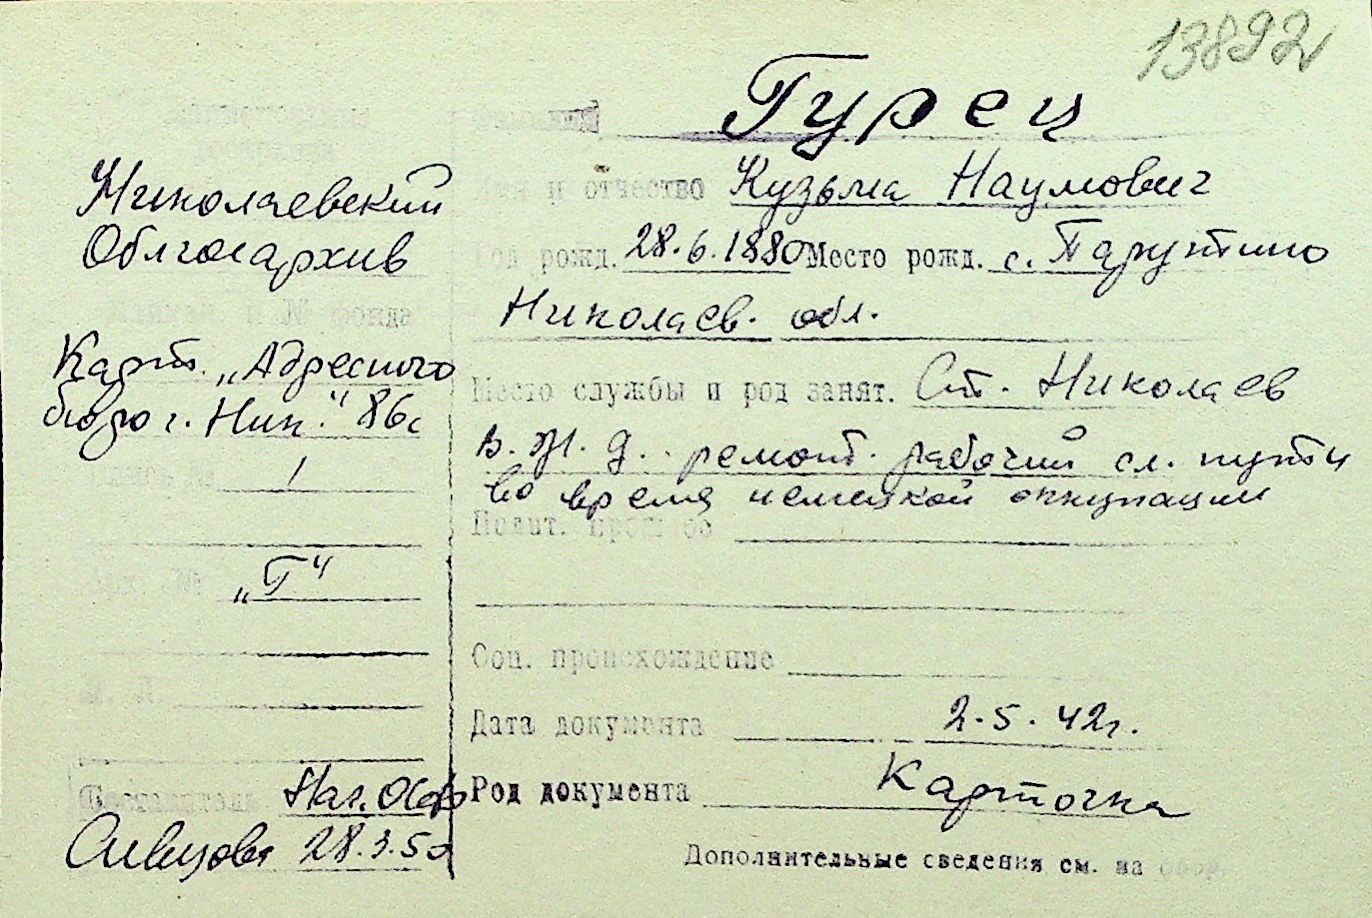 13892
Гурец
Николаевский
Облгосархив
Имя и отчество Кузьма Наумович
Год рожд. 28.6.1880 Место рожд. с. Парутино
Николаев. обл.
фонда №
Карт. „Адресного
бюро г. Ник." 86с
Место службы и род занят. Ст. Николаев
в. ж. д. ремонт. рабочий сл. пути
во время немецкой оккупации
1
Полит.
„Г"
Соц. происхождение
Дата документа 2.5.42г.
Род документа Карточка
Составитель Нач. ОСФ
Сивцова 28.3.5
Дополнительные сведения см. на обор.